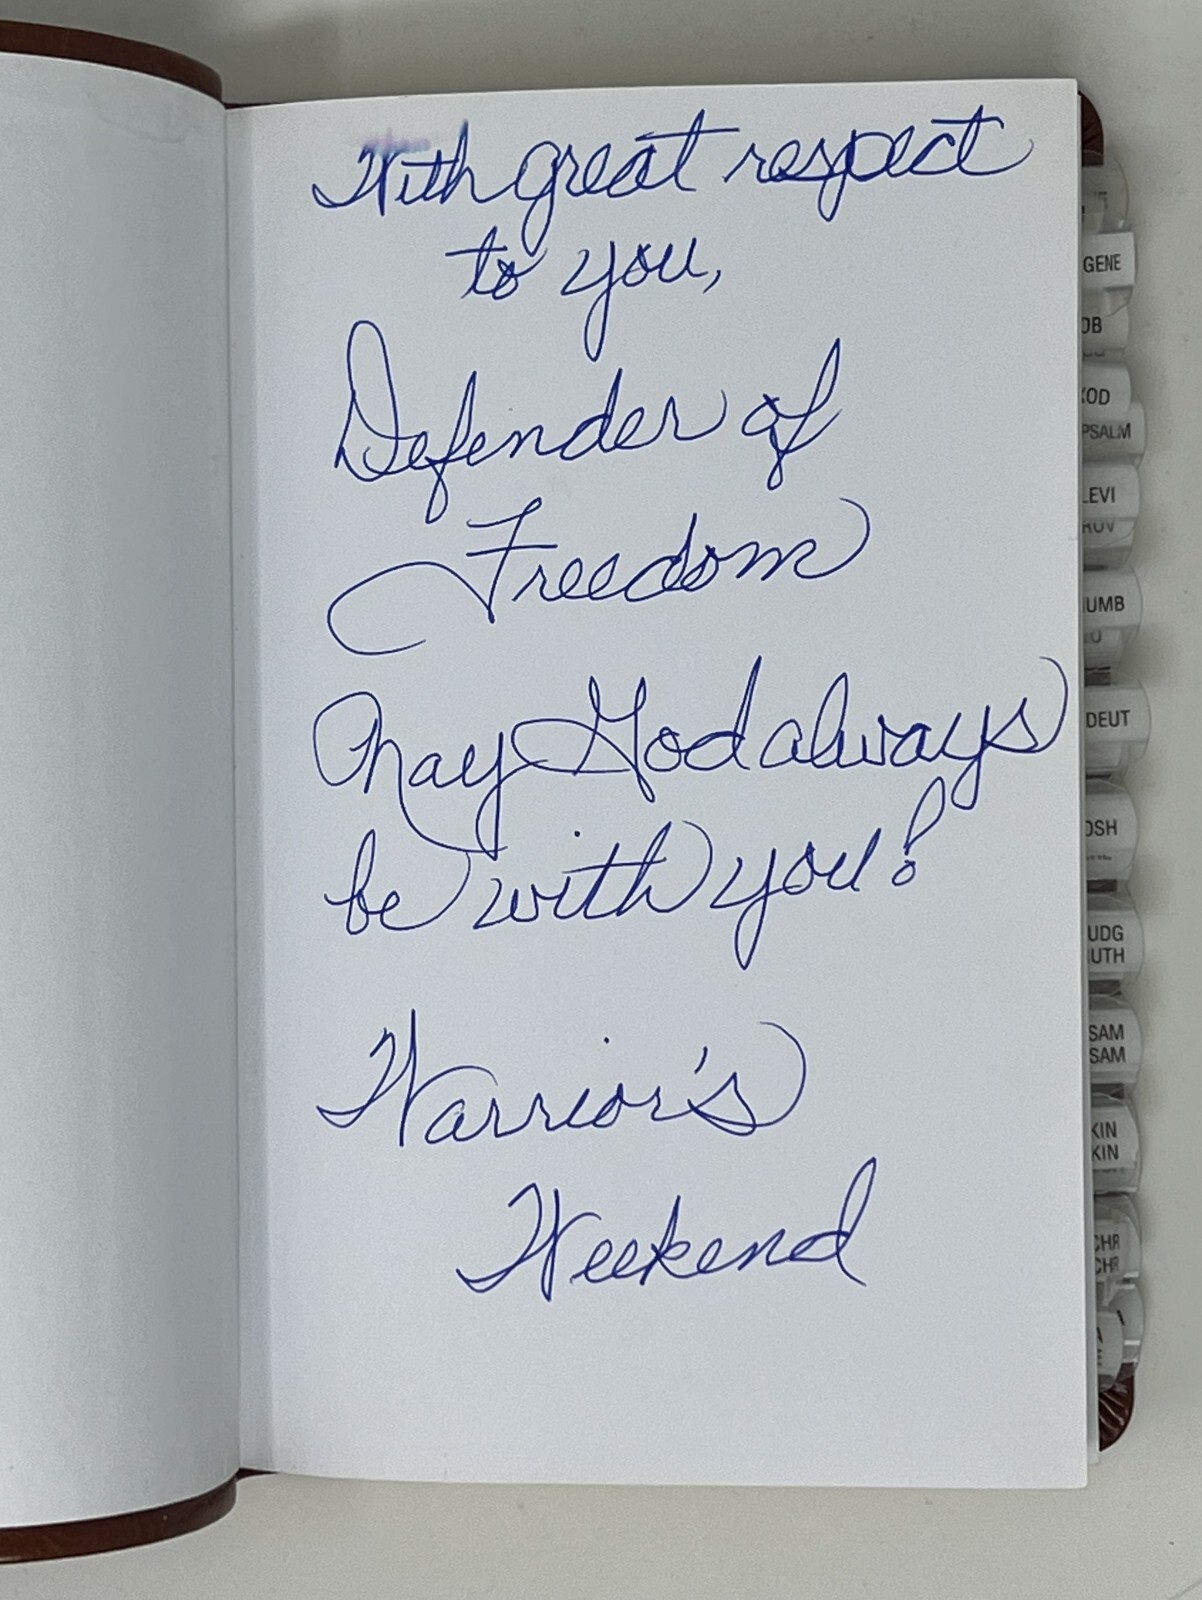 With great respect
to you,
Defender of
Freedom
May God always
be with you!
Warrior's
Weekend
GENE
OB
XOD
PSALM
LEVI
ROV
NUMB
DEUT
OSH
UDG
UTH
SAM
SAM
KIN
KIN
CHR
CHR